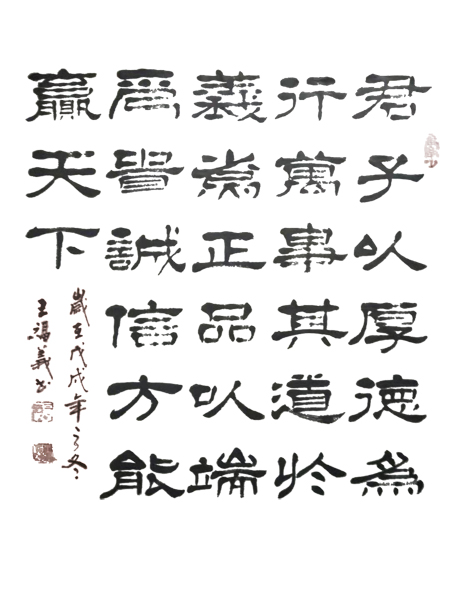 君子以厚德為
行萬事其道於
義為正品以端
為貴誠信方能
贏天下
歲在戊戌年之冬
王福義書